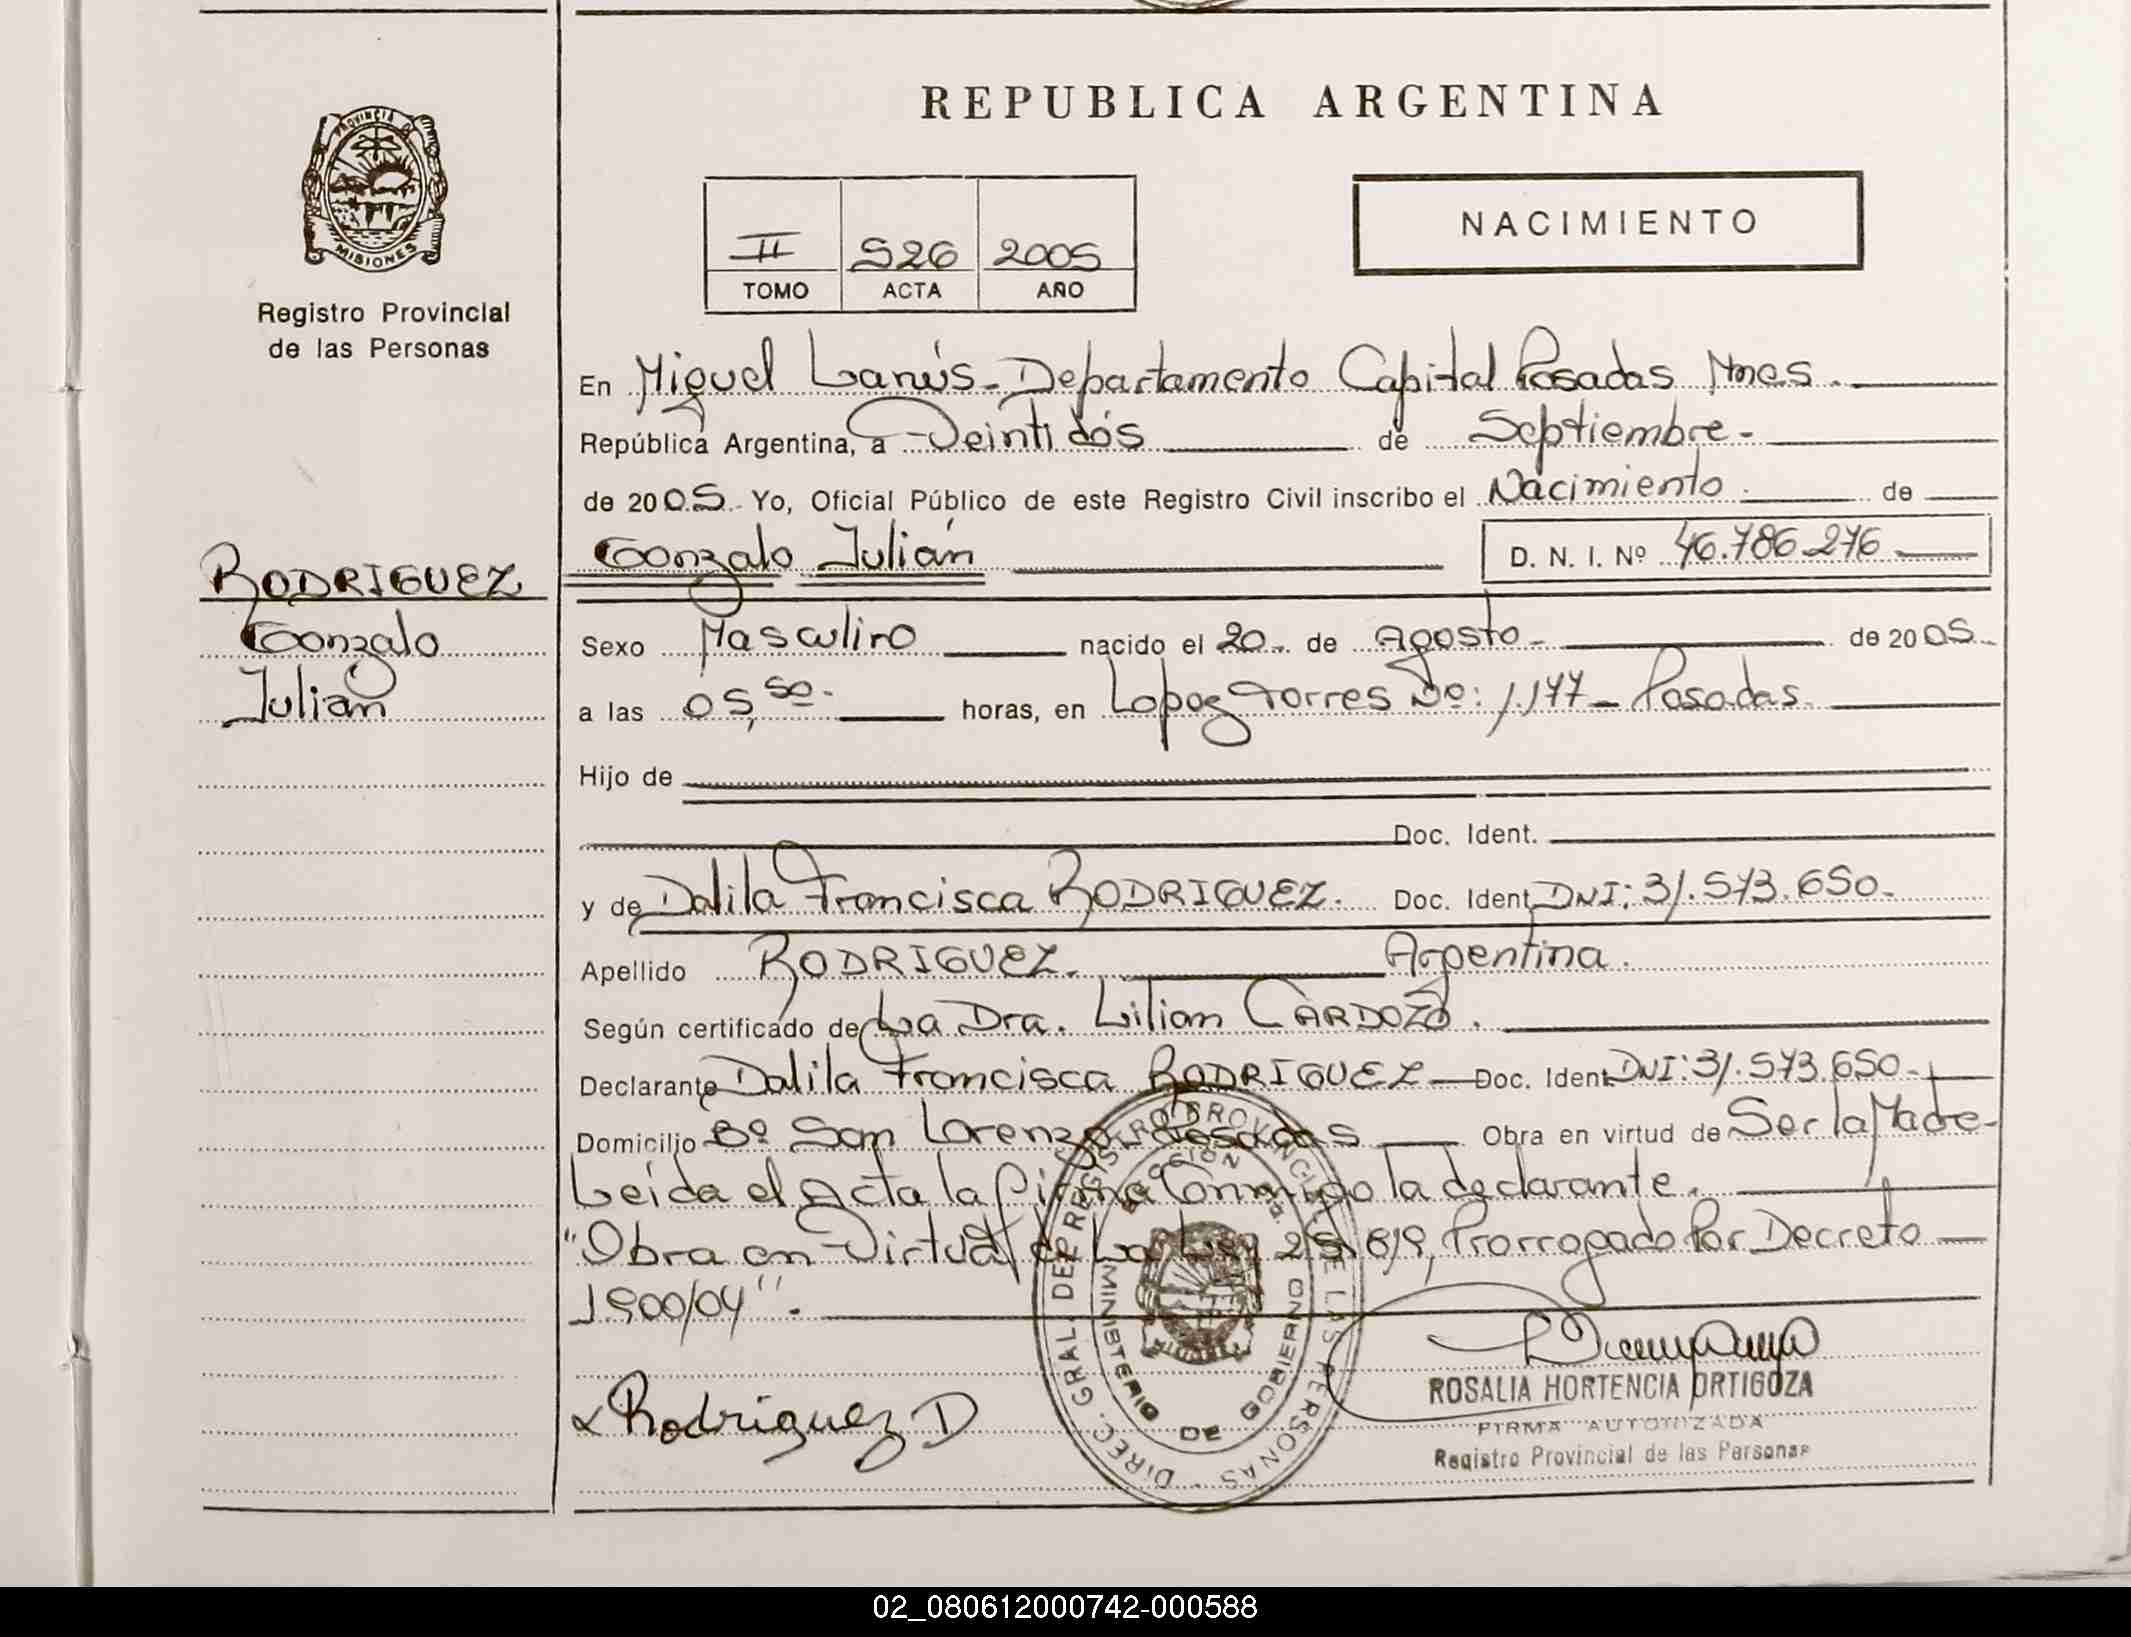 REPUBLICA ARGENTINA
PROVINCIA DE
MISIONES
Registro Provincial
de las Personas
II 526 2005
TOMO ACTA AÑO
NACIMIENTO
En Miguel Lanús - Departamento Capital Posadas Mnes.
República Argentina, a Veintidós de Septiembre -
de 2005 Yo, Oficial Público de este Registro Civil inscribo el Nacimiento de
Gonzalo Julián D. N. I. Nº 46.786.276
RODRIGUEZ
Gonzalo
Julián
Sexo Masculino nacido el 20 de Agosto - de 2005
a las 05,50 - horas, en Lopez Torres No: 1.177 - Posadas.
Hijo de
Doc. Ident.
y de Dalila Francisca RODRIGUEZ. Doc. Ident. DNI: 31.573.650 -
Apellido RODRIGUEZ. Argentina.
Según certificado de La Dra. Lilian CARDOZO.
Declarante Dalila Francisca RODRIGUEZ - Doc. Ident. DNI: 31.573.650 -
Domicilio Bº San Lorenzo - Posadas Obra en virtud de Ser la Madre -
Leída el Acta la Firma Conmigo la declarante.
"Obra en Virtud de La Ley 25.819, Prorrogado Por Decreto
1900/04".
Rodriguez D
DIREC. GRAL. DEL REGISTRO PROVINCIAL DE LAS PERSONAS
MINISTERIO DE GOBIERNO
ROSALIA HORTENCIA ORTIGOZA
FIRMA AUTORIZADA
Registro Provincial de las Personas
02_080612000742-000588